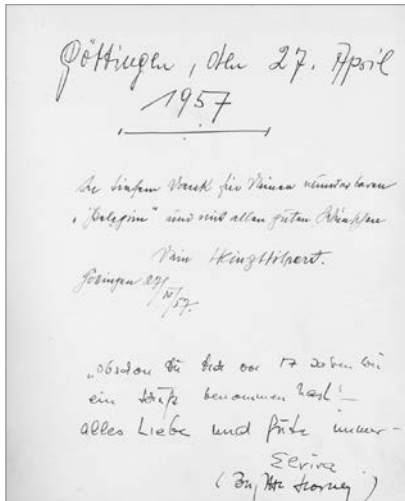 Göttingen, den 27. April
1957
In tiefem Dank für Deinen wunderbaren
und mit allen guten Wünschen
Dein Heinz Hilpert.
Göttingen 27/IV/57.
„Obschon Du Dich vor 17 Jahren wie
ein benommen hast! –
alles Liebe und Gute immer –
Elvira